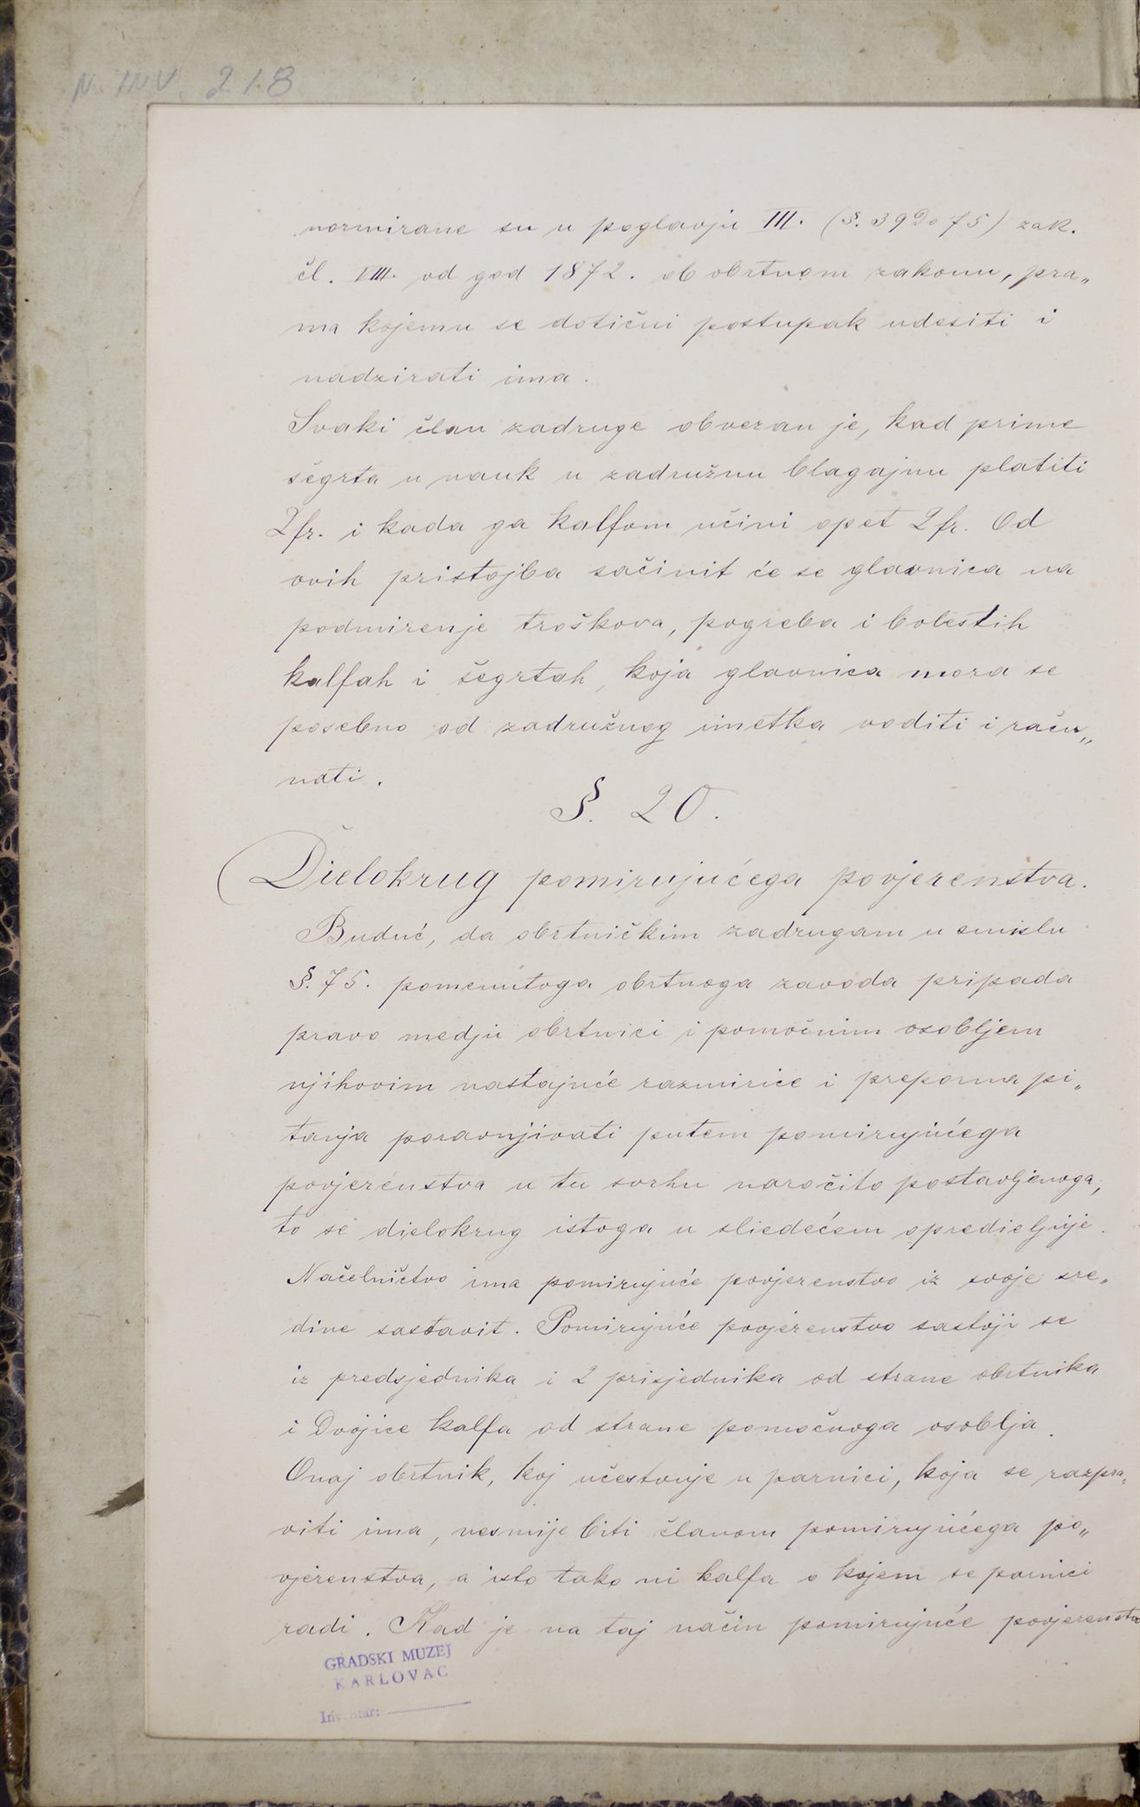 N. INV. 218
normirane su u poglavju III. (§. 39 do 75) zak.
čl. VIII. od god 1872. ob obrtnom zakonu, pra„
ma kojemu se dotični postupak udesiti i
nadzirati ima.
Svaki član zadruge obvezan je, kad prime
šegrta u nauk u zadružnu blagajnu platiti
2 fr. i kada ga kalfom učini opet 2 fr. Od
ovih pristojba sačinit će se glavnica na
podmirenje troškova, pogreba i bolestih
kalfah i šegrtah, koja glavnica mora se
posebno od zadružnog imetka voditi i raču„
nati.
§. 20.
Dielokrug pomirujućega povjerenstva.
Buduć, da obrtničkim zadrugam u smislu
§. 75. pomenutoga obrtnoga zavoda pripada
pravo medju obrtnici i pomoćnim osobljem
njihovim nastajuće razmirice i preporna pi„
tanja poravnjivati putem pomirujućega
povjerenstva u tu svrhu naročito postavljenoga,
to se dielokrug istoga u sliedećem opredieljuje.
Načelničtvo ima pomirujuće povjerenstvo iz svoje sre„
dine sastavit. Pomirujuće povjerenstvo sastoji se
iz predsjednika i 2 prisjednika od strane obrtnika
i Dvojice kalfa od strane pomoćnoga osoblja.
Onaj obrtnik, koj učestvuje u parnici, koja se razpra„
viti ima, nesmije biti članom pomirujućega po„
vjerenstva, a isto tako ni kalfa o kojem se parnici
radi. Kad je na taj način pomirujuće povjerenstv
GRADSKI MUZEJ
KARLOVAC
Inventar: